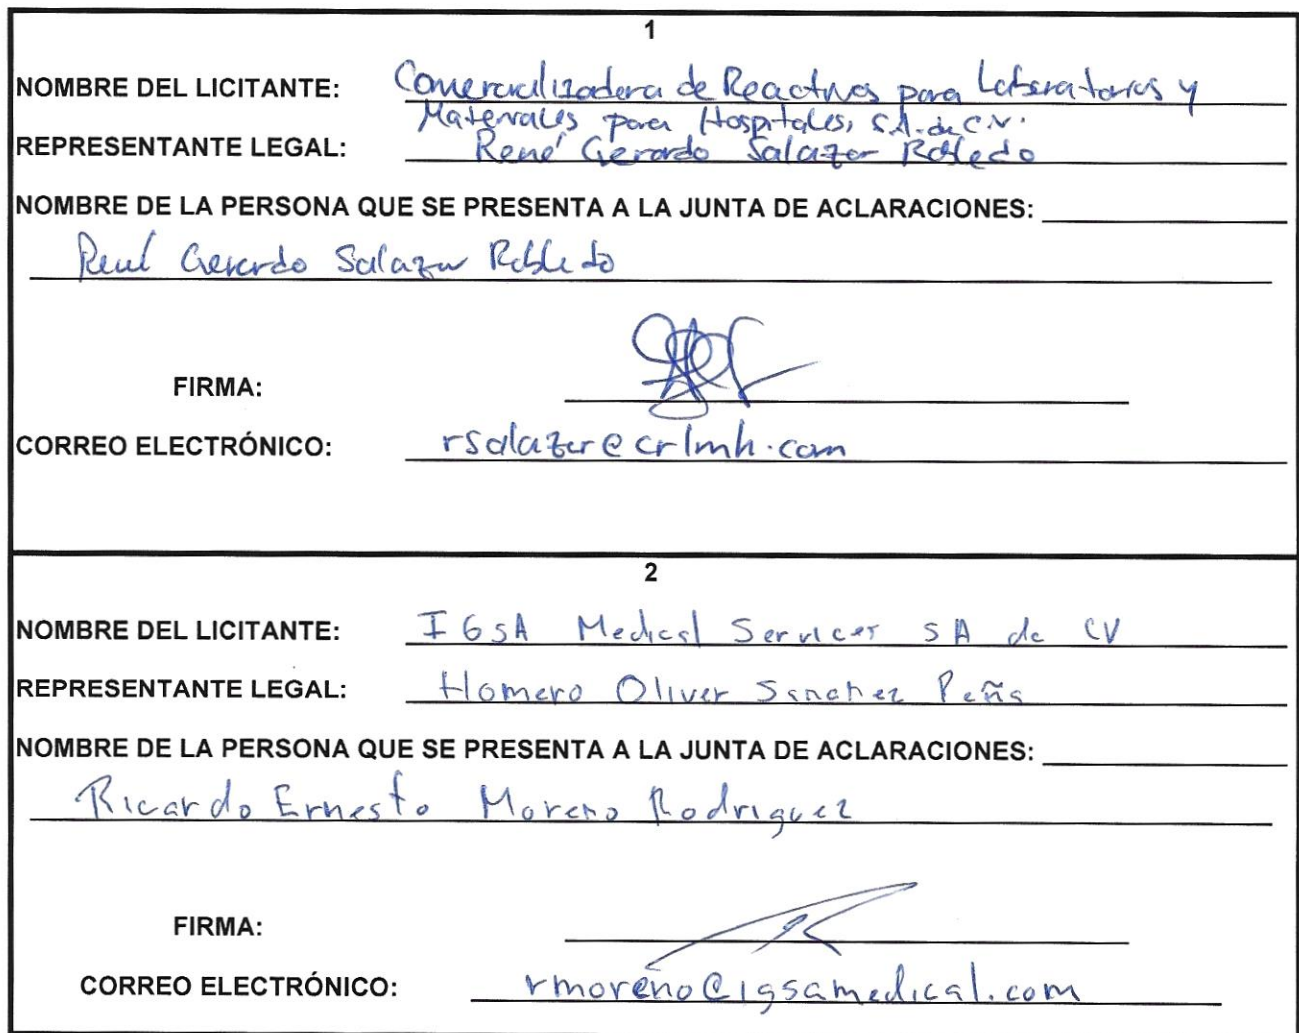 1
NOMBRE DEL LICITANTE: Comercializadora de Reactivos para Laboratorios y
Materiales para Hospitales, S.A. de C.V.
REPRESENTANTE LEGAL: René Gerardo Salazar Robledo
NOMBRE DE LA PERSONA QUE SE PRESENTA A LA JUNTA DE ACLARACIONES:
René Gerardo Salazar Robledo
FIRMA:
CORREO ELECTRÓNICO: rsalazar@crlmh.com
2
NOMBRE DEL LICITANTE: IGSA Medical Services SA de CV
REPRESENTANTE LEGAL: Homero Oliver Sanchez Peña
NOMBRE DE LA PERSONA QUE SE PRESENTA A LA JUNTA DE ACLARACIONES:
Ricardo Ernesto Moreno Rodriguez
FIRMA:
CORREO ELECTRÓNICO: rmoreno@igsamedical.com